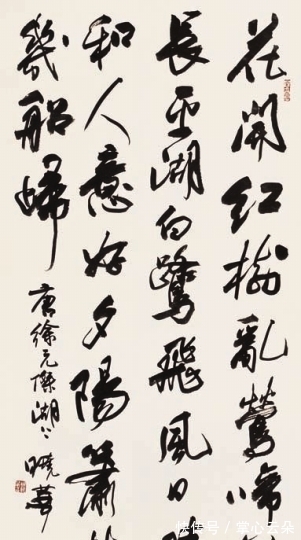 花開紅樹亂鶯啼
長平湖白鷺飛風日
和人意好夕陽簫
幾船歸
唐徐元傑湖上
快传号／掌心云朵